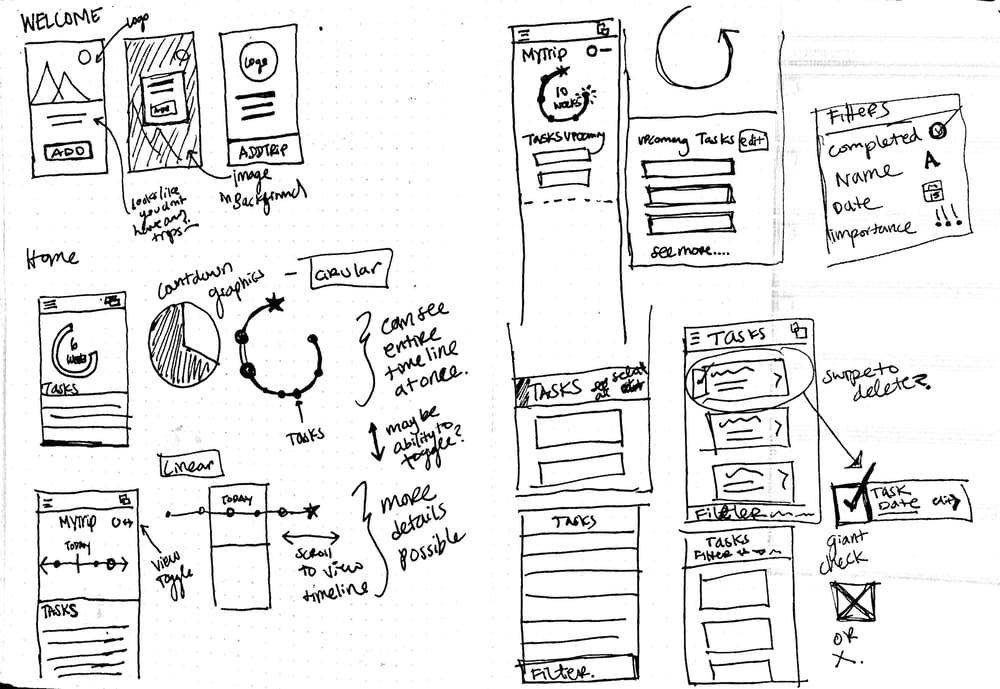 WELCOME
Logo
ADD
Looks like
you dont
have any
trips?
ADD
image
in Background
Logo
ADD TRIP
Home
6
weeks
TASKS
countdown
graphics
CIRCULAR
TASKS
can see
entire
timeline
at once.
maybe
ability to
toggle?
Linear
MyTrip
TODAY
TASKS
VIEW
Toggle
TODAY
SCROLL
TO VIEW
timeline
more
details
possible
MyTrip
10
WEEKS
TASKS Upcoming
Upcoming Tasks edit
see more....
FilteRS
completed
Name A
Date
15
importance !!!
TASKS see all select edit
TASKS
Filter
swipe to
delete?
TASK
DATE edit
giant
check
OR
X.
TASKS
FilteR.
TASKS
Filter